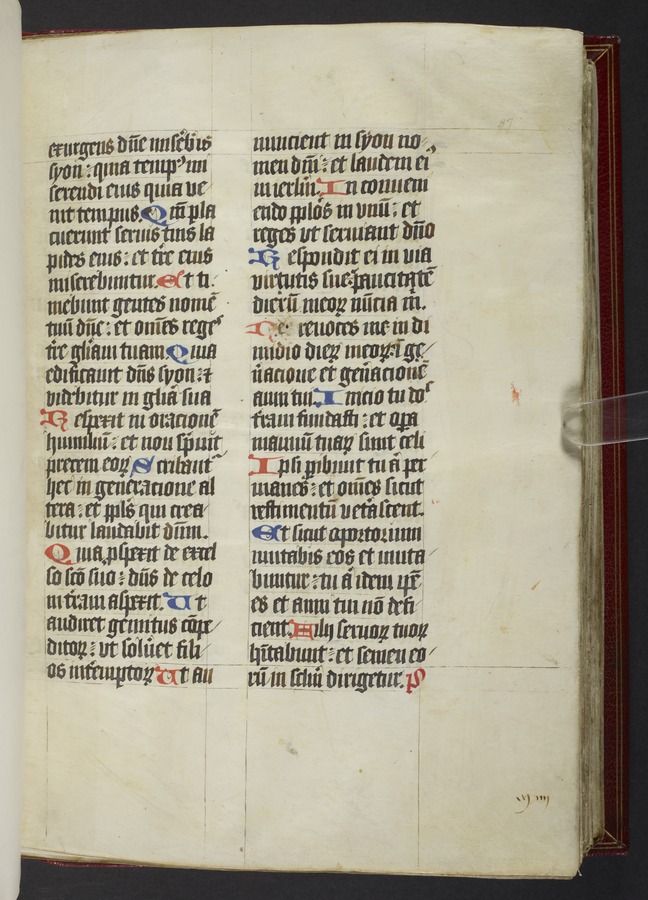 exurgens dn̄e miseb̄is
syon : quia temp᷒ mi
serendi eius quia ve
nit tempus. Qm̄ pla
cuerunt seruis tuis la
pides eius : et tr̄e eius
miserebuntur. Et ti
mebunt gentes nomē
tuū dn̄e : et om̄es reges
tr̄e gl̄iam tuam. Quia
edificauit dn̄s syon : ⁊
videbitur in gl̄ia sua
Respexit in oracionē
humiliū : et non sp̄uit
precem eoꝝ Scribant᷑
hec in generacione al
tera : et ppl̄s qui crea
bitur laudabit dn̄m.
Quia ꝓspexit de excel
so sc̄o suo : dn̄s de celo
in t̄ram aspexit. Ut
audiret gemitus cōpe
ditoꝝ : vt soluet fili
os int̄emptoꝝ Ut an
nuncient in syon no
men dn̄i : et laudem ei᷒
in ierl̄m. In conueni
endo ppl̄os in vnū : et
reges vt seruiant dn̄o
Respondit ei in via
virtutis sue : paucitatē
dierū meoꝝ nūcia m̄.
Ne reuoces me in di
midio dieꝝ meoꝝ : ī ge
n̄acione et gen̄acionē
anni tui. Inicio tu do᷒
t̄ram fundasti : et op̄a
manuū tuaꝝ sunt celi
Ipsi ꝑibunt tu ā per
manes : et om̄es sicut
vestimentū vet̄ascent.
Et sicut oportorium
mutabis eos et muta
buntur : tu ā idem ip̄e
es et anni tui nō defi
cient. Filij seruoꝝ tuoꝝ
hītabunt : et semen eo
rū in sc̄lm̄ dirigetur. P
87